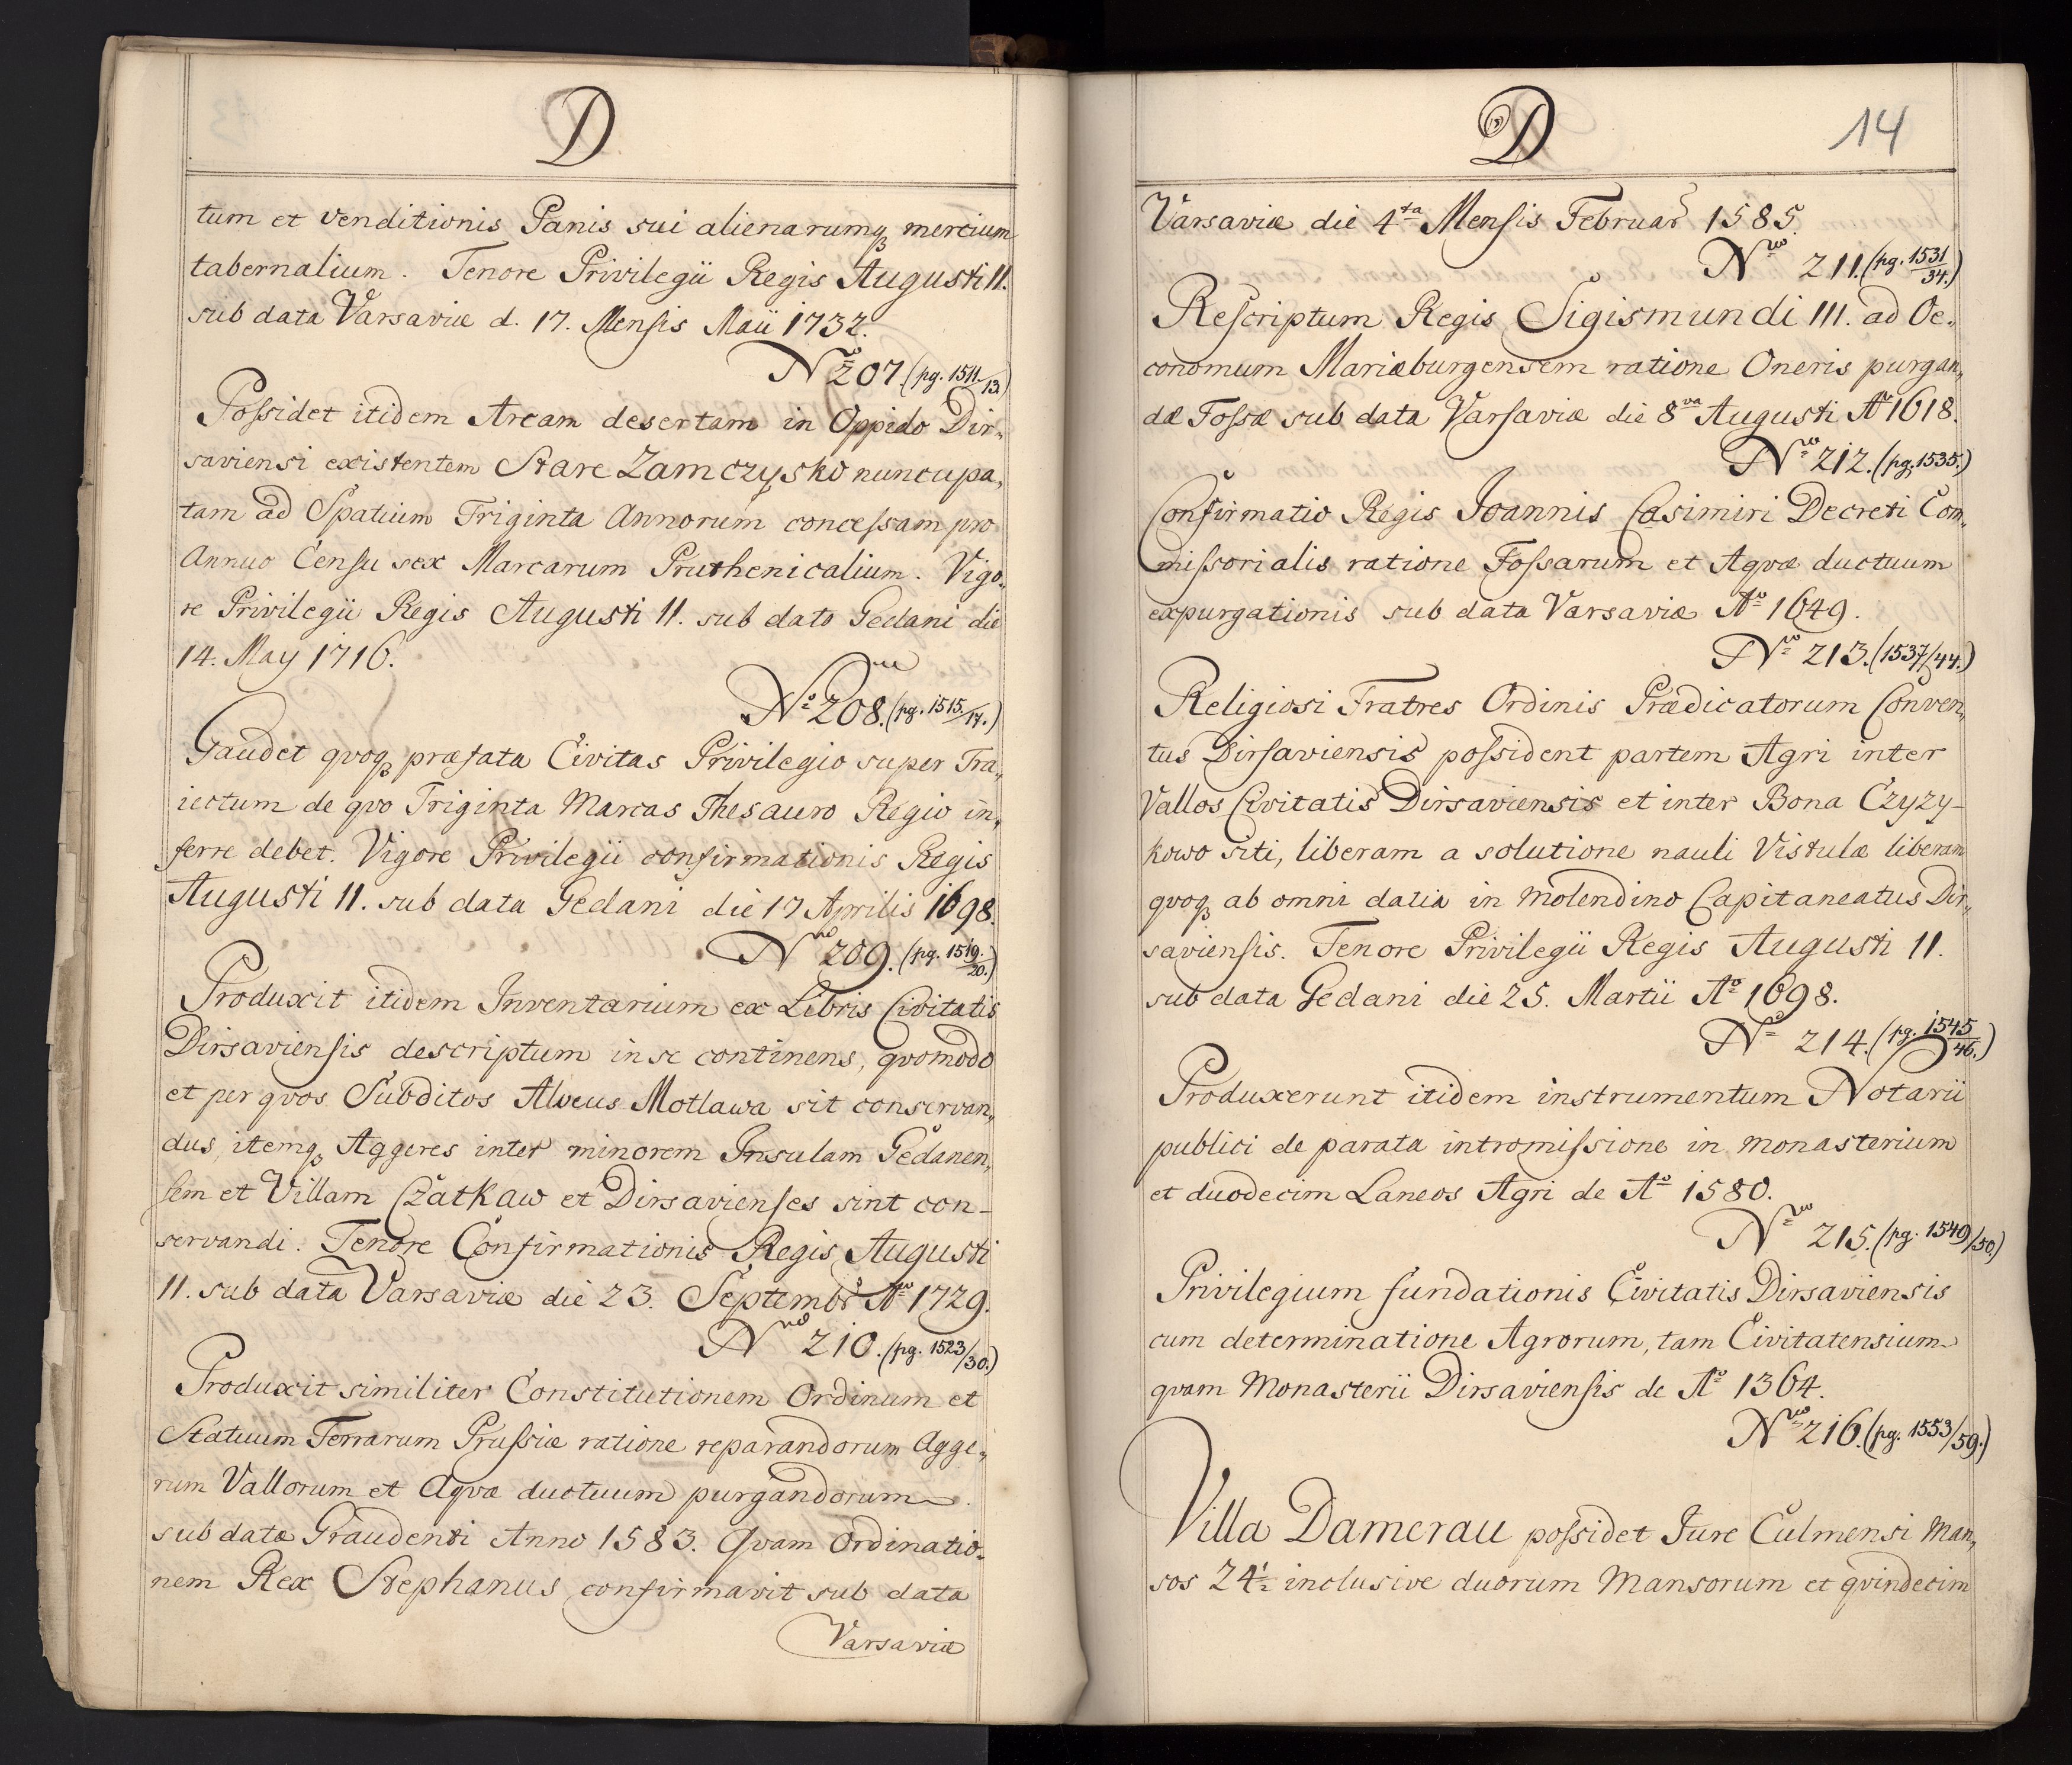 D
tum et venditionis Panis sui alienarumqꝫ mercium
tabernalium. Tenore Privilegii Regis Augusti II.
sub data Varsaviæ d. 17. Mensis Maii 1732.
Nro 207. (pg. 1511/13.)
Possidet itidem Aream desertam in Oppido Dir„
saviensi existentem Stare Zamczysko nuncupa„
tam ad Spatium Triginta Annorum concessam pro
Annuo Censu sex Marcarum Pruthenicalium. Vigo„
re Privilegii Regis Augusti II. sub dato Gedani die
14. May 1716.
No 208. (pg. 1515./17.)
Gaudet qvoqꝫ præfata Civitas Privilegio super Tra„
iectum de qvo Triginta Marcas Thesauro Regio in„
ferre debet. Vigore Privilegii confirmationis Regis
Augusti II. sub data Gedani die 17 Aprilis 1698.
Nro 209. (pg. 1519./20.)
Produxit itidem Inventarium ex Libris Civitatis
Dirsaviensis descriptum in se continens, qvomodo
et per qvos Subditos Alveus Motlawa sit conservan„
dus, itemqꝫ Aggeres inter minorem Insulam Gedanen„
sem et Villam Czatkaw et Dirsavienses sint con-
servandi. Tenore Confirmationis Regis Augusti
II. sub data Varsaviæ die 23. Septembr Ao 1729.
Nro 210. (pg. 1523/30.)
Produxit similiter Constitutionem Ordinum et
Statuum Terrarum Prussiæ ratione reparandorum Agge„
rum Vallorum et Aqvæ ductuum purgandorum
sub data Graudenti Anno 1583. Qvam Ordinatio„
nem Rex Stephanus confirmavit sub data
Varsaviæ
D
14
Varsaviæ die 4ta Mensis Februar 1585.
Nro 211. (pg. 1531/34.)
Rescriptum Regis Sigismundi III. ad Oe„
conomum Mariæburgensem ratione Oneris purgan„
dæ Fossæ sub data Varsaviæ die 8va Augusti Ao 1618.
Nro 212. (pg. 1535.)
Confirmatio Regis Joannis Casimiri Decreti Com„
missorialis ratione Fossarum et Aqvæ ductuum
expurgationis sub data Varsaviæ Ao 1649.
Nro 213. (1537/44.)
Religiosi Fratres Ordinis Prædicatorum Conven„
tus Dirsaviensis possident partem Agri inter
Vallos Civitatis Dirsaviensis et inter Bona Czyzy-
kowo siti, liberam a solutione nauli Vistulæ liberam
qvoqꝫ ab omni datia in Molendino Capitaneatus Dir„
saviensis. Tenore Privilegii Regis Augusti II.
sub data Gedani die 25. Martii Ao 1698.
No 214. (pg. 1545/46.)
Produxerunt itidem instrumentum Notarii
publici de parata intromissione in monasterium
et duodecim Laneos Agri de Ao 1580.
Nro 215. (pg. 1549/50.)
Privilegium fundationis Civitatis Dirsaviensis
cum determinatione Agrorum, tam Civitatensium
qvam Monasterii Dirsaviensis de Ao 1364.
Nro 216. (pg. 1553/59.)
Villa Damerau possidet Jure Culmensi Man„
sos 24½ inclusive duorum Mansorum et qvindecim